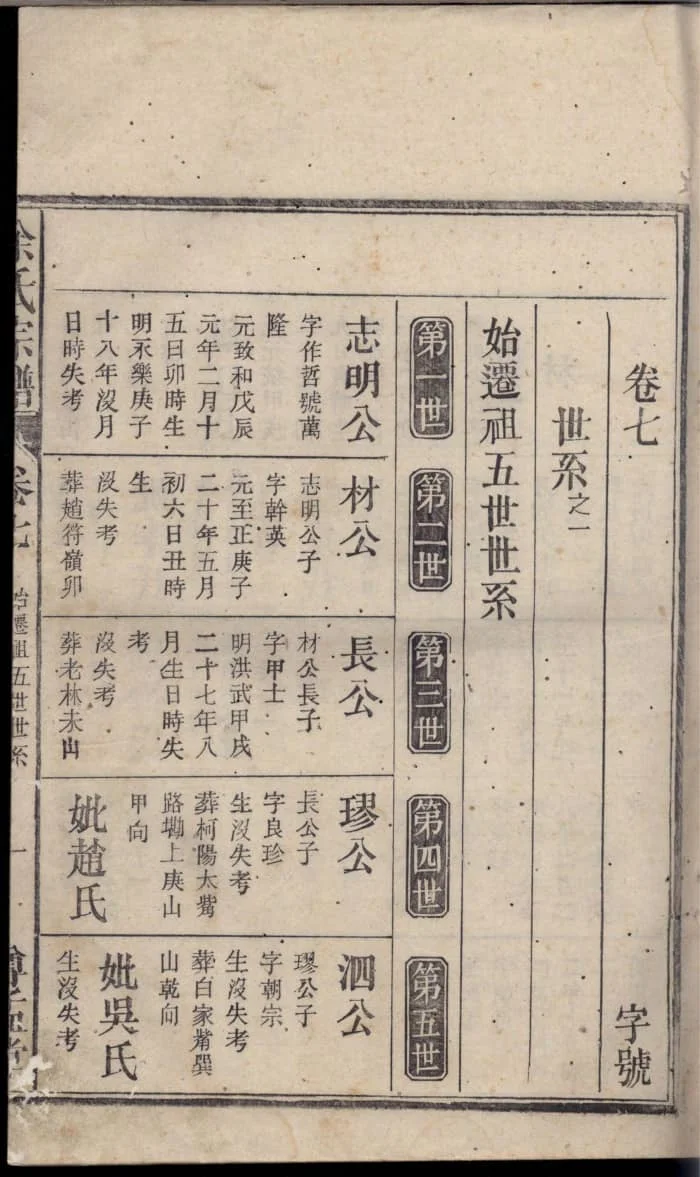 卷七
字號
世系之一
始遷祖五世世系
第一世
第二世
第三世
第四世
第五世
志明公
字作哲號萬
隆
元致和戊辰
元年二月十
五日卯時生
明永樂庚子
十八年沒月
日時失考
材公
志明公子
字幹英
元至正庚子
二十年五月
初六日丑時
生
沒失考
葬趙符嶺卯
長公
材公長子
字甲士
明洪武甲戌
二十七年八
月生日時失
考
沒失考
葬老林未山
璆公
長公子
字良珍
生沒失考
葬柯陽太嘴
路塝上庚山
甲向
妣趙氏
泗公
璆公子
字朝宗
生沒失考
葬白家嘴巽
山乾向
妣吳氏
生沒失考
氏宗譜
卷七
始遷祖五世世系
一